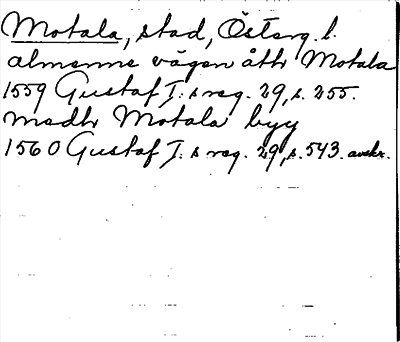 Motala, stad, Österg. l.
almenne vägen åthr Motala
1559 Gustaf I:s reg. 29, s. 255.
medhr Motala byy
1560 Gustaf I:s reg. 29, s. 543. avskr.